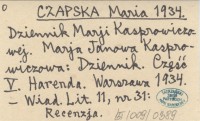 CZAPSKA Maria 1934.
Dziennik Marji Kasprowiczo-
wej. Marja Janowa Kaspro-
wiczowa: Dziennik Część
V. Harenda. Warszawa 1934.
– Wiad. Lit. 11, nr 31:
Recenzja.